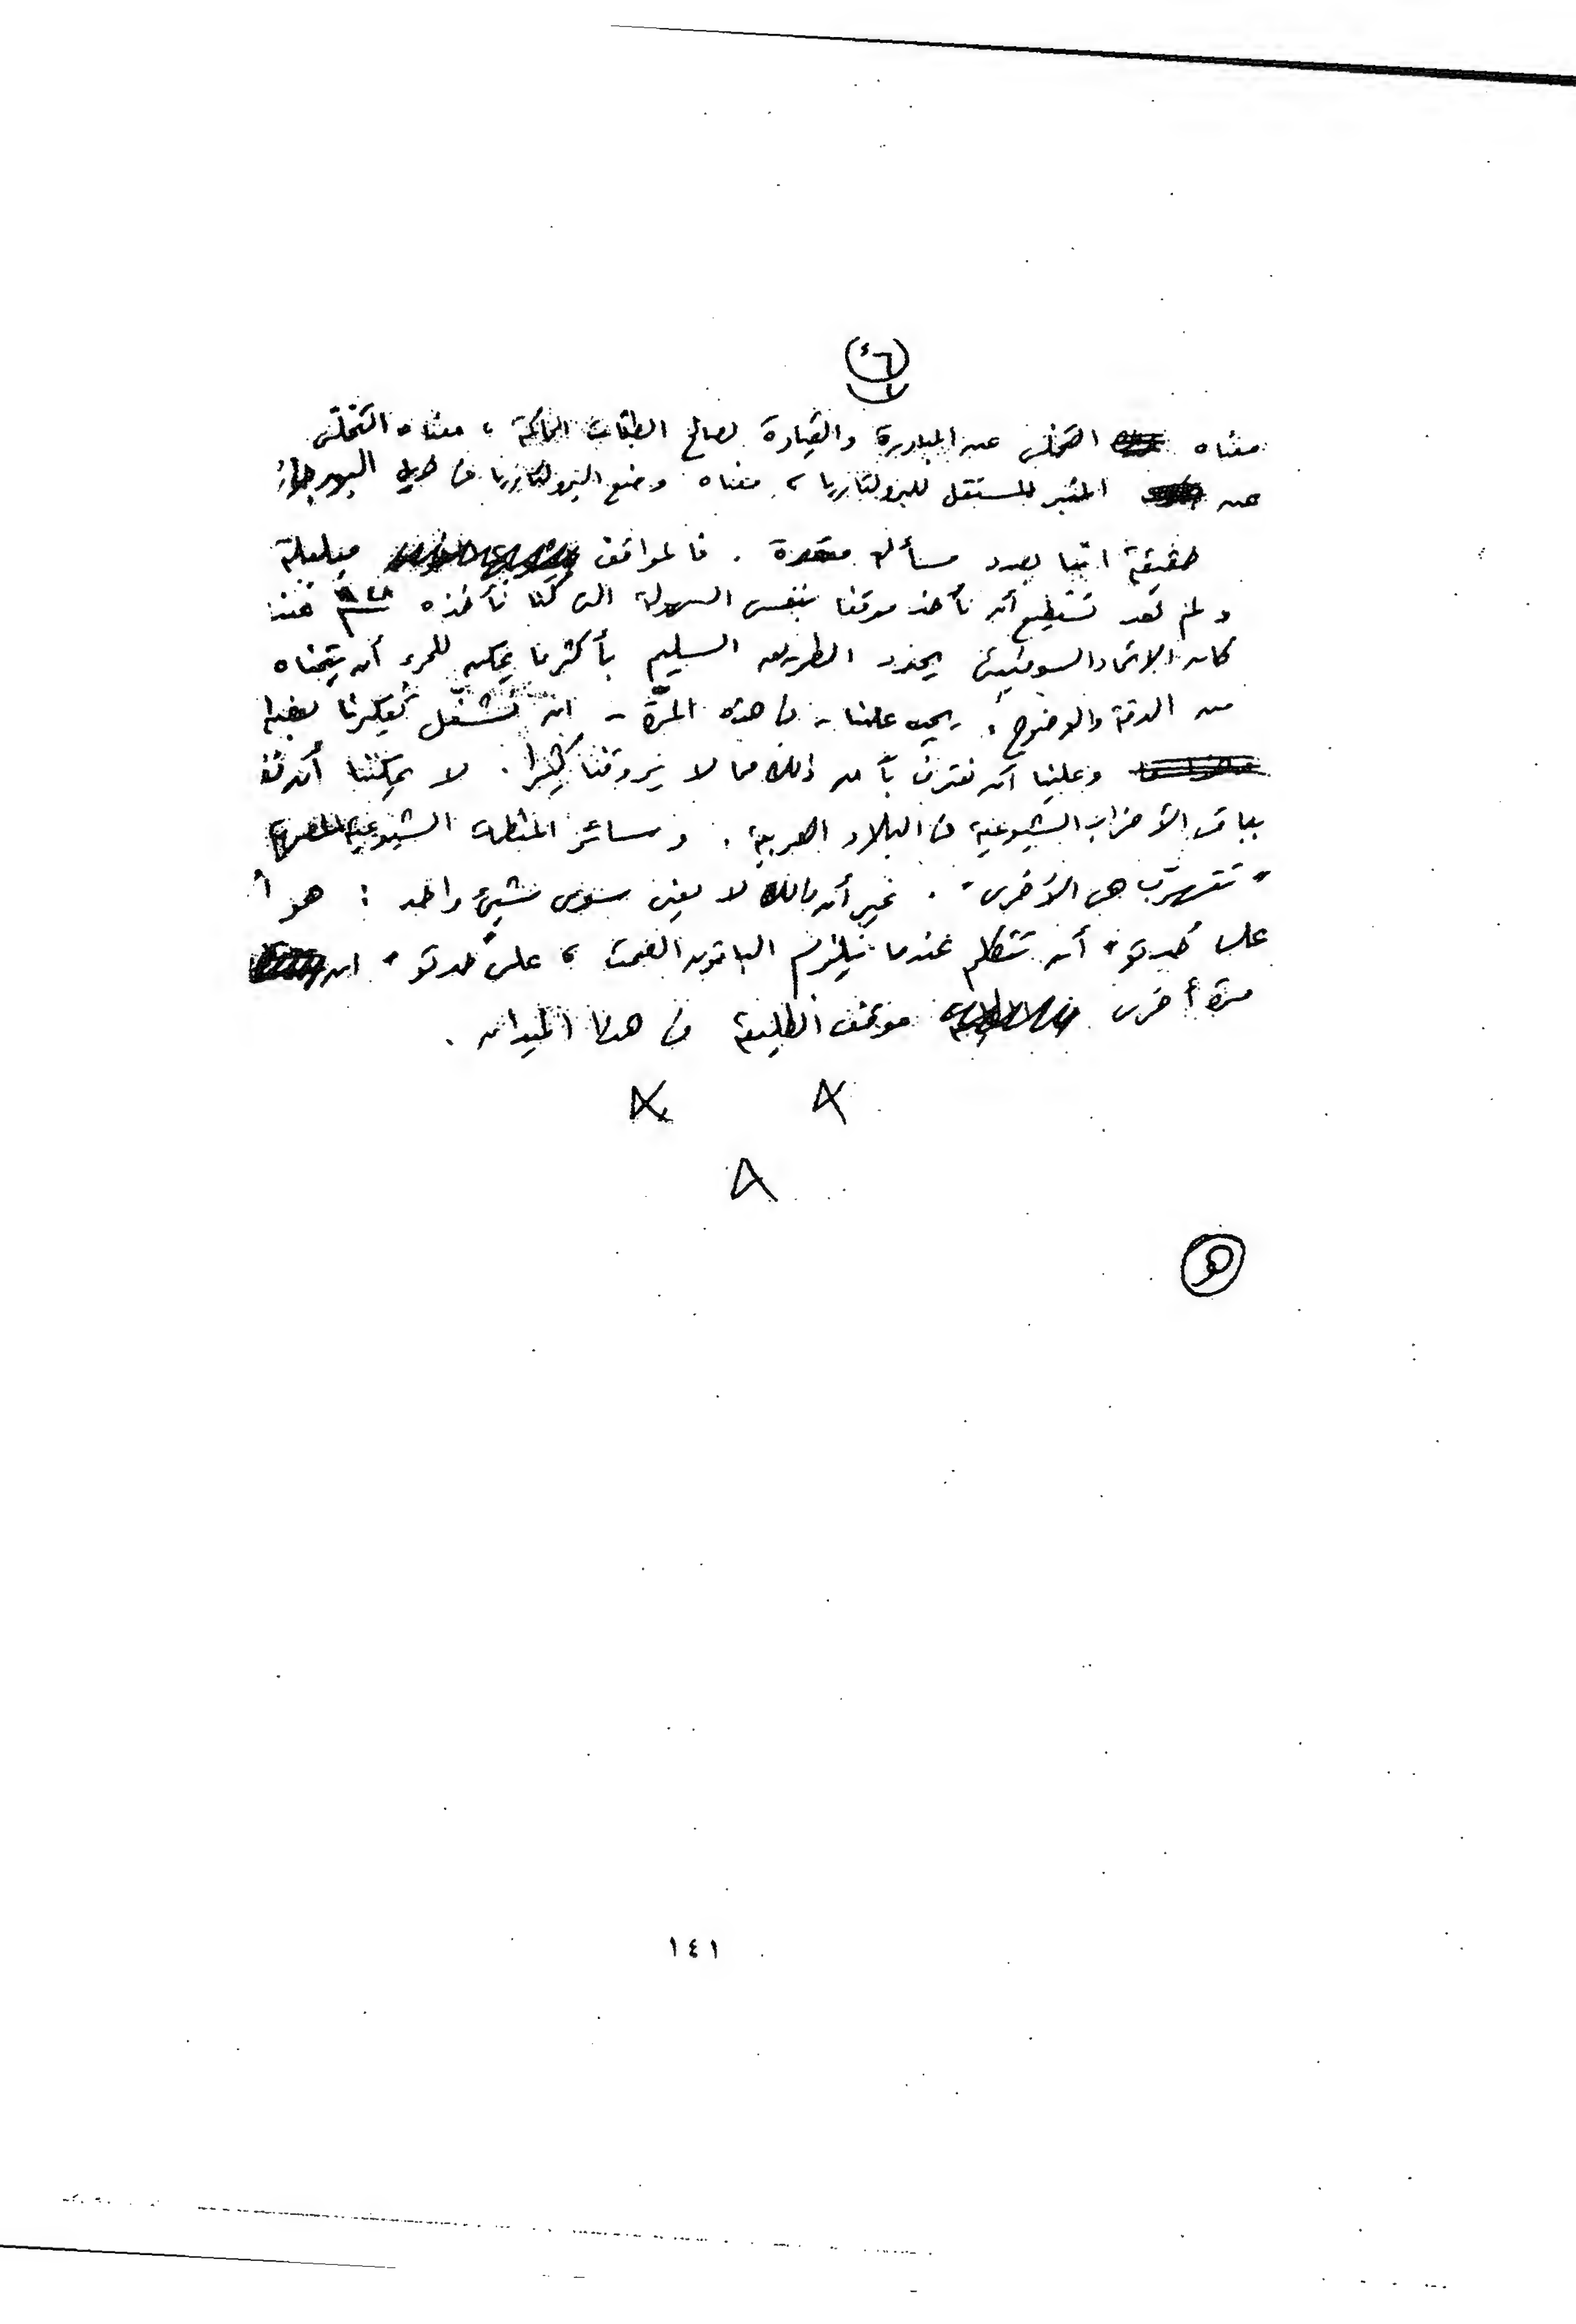 ٤٦
معناه التخلى عن المبادرة والقيادة لصالح الطبقات الحاكمة ، معناه التخلّى
عن المنبر المستقل للبرولتاريا ، معناه وضع البرولتاريا فى
حقيقة اننا بصدد مسألة معقدة . فالمواقف مبلبلة
ولم نعد نستطيع أن نأخذ موقفا بنفس السهولة التى كنا نأخذه
كان الاتحاد السوفييتى يحدد الطريق السليم بأكثر ما يمكن للمرء أن يتمناه
من الدقة والوضوح . يجب علينا - فى هذه المرّة - ان نشغّل تفكيرنا
وعلينا أن نعترف بأن ذلك مما لا يروقنا كثيرا . لا يمكننا أن
بباقى الأحزاب الشيوعية فى البلاد العربية . وسائر المنظمات الشيوعية المصرية
" تتهرّب هى الأخرى " . غير أن ذلك لا يعنى سوى شيئ واحد : هو أ
على " حدتو " أن تتكلم عندما يلزم الباقون الصمت ، على " حدتو " ان
مرة أخرى موقف الطليعة فى هذا الميدان .
هـ
١٤١